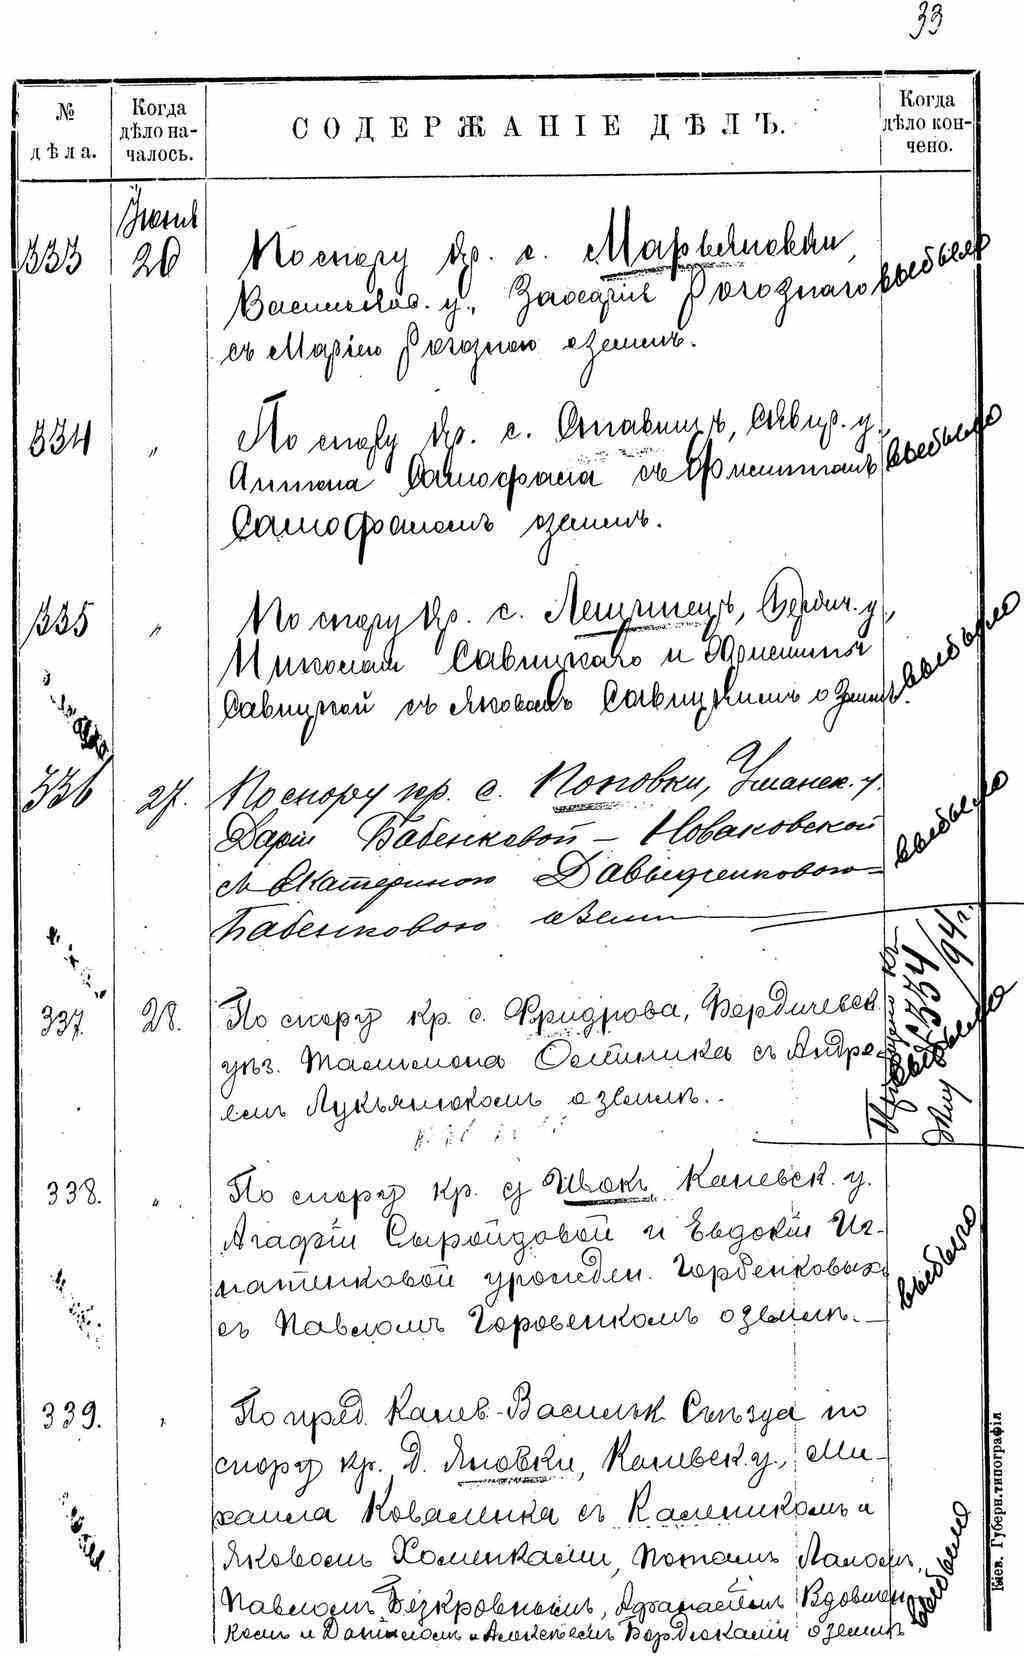 33
№ дѣла.
Когда дѣло на-
чалось.
СОДЕРЖАНІЕ ДѢЛЪ.
Когда дѣло кон-
чено.
Іюня
333 26 По спору кр. с. Марьяновки,
Васильков. у., Захарія Рогознаго выбыло
съ Маріею Рогозною о землѣ.
334 „ По спору кр. с. Ставищъ, Сквир. у., выбыло
Антона Самофала съ Филиппомъ
Самофаломъ о землѣ.
335 „ По спору кр. с. Лещинецъ, Бердич. у.,
Николая Савицкаго и
Савицкой съ Яковомъ Савицкимъ о землѣ. выбыло
336 27. По спору кр. с. Поповки, Уманск. у.
Даріи Бабенковой – Новаковской выбыло
съ Екатериною Давыденковою-
Бабенковою о земл
337. 28. По спору кр. с. Фридрова, Бердичевск.
уѣз. съ Андре-
емъ Лукьянюкомъ о землѣ.
дѣлу 334/94 г.
выбыло
338. „ По спору кр. с. Каневск. у.
Агафіи Сыроѣдовой и Евдокіи Иг-
натенковой урожден. Горбенковыхъ выбыло
съ Павломъ Горбенкомъ о землѣ.
339. „ По пред. Канев-Васильк Съѣзда по
спору кр. Д. Яновки, Каневск. у., Ми-
хаила Коваленка съ Каленикомъ и
Яковомъ Хоменками,
Павломъ Безкровнымъ, Афанасіемъ Вдовиен
комъ и Даніиломъ и Алексѣемъ Бордюками о землѣ выбыло
Кіев. Губерн. типографія